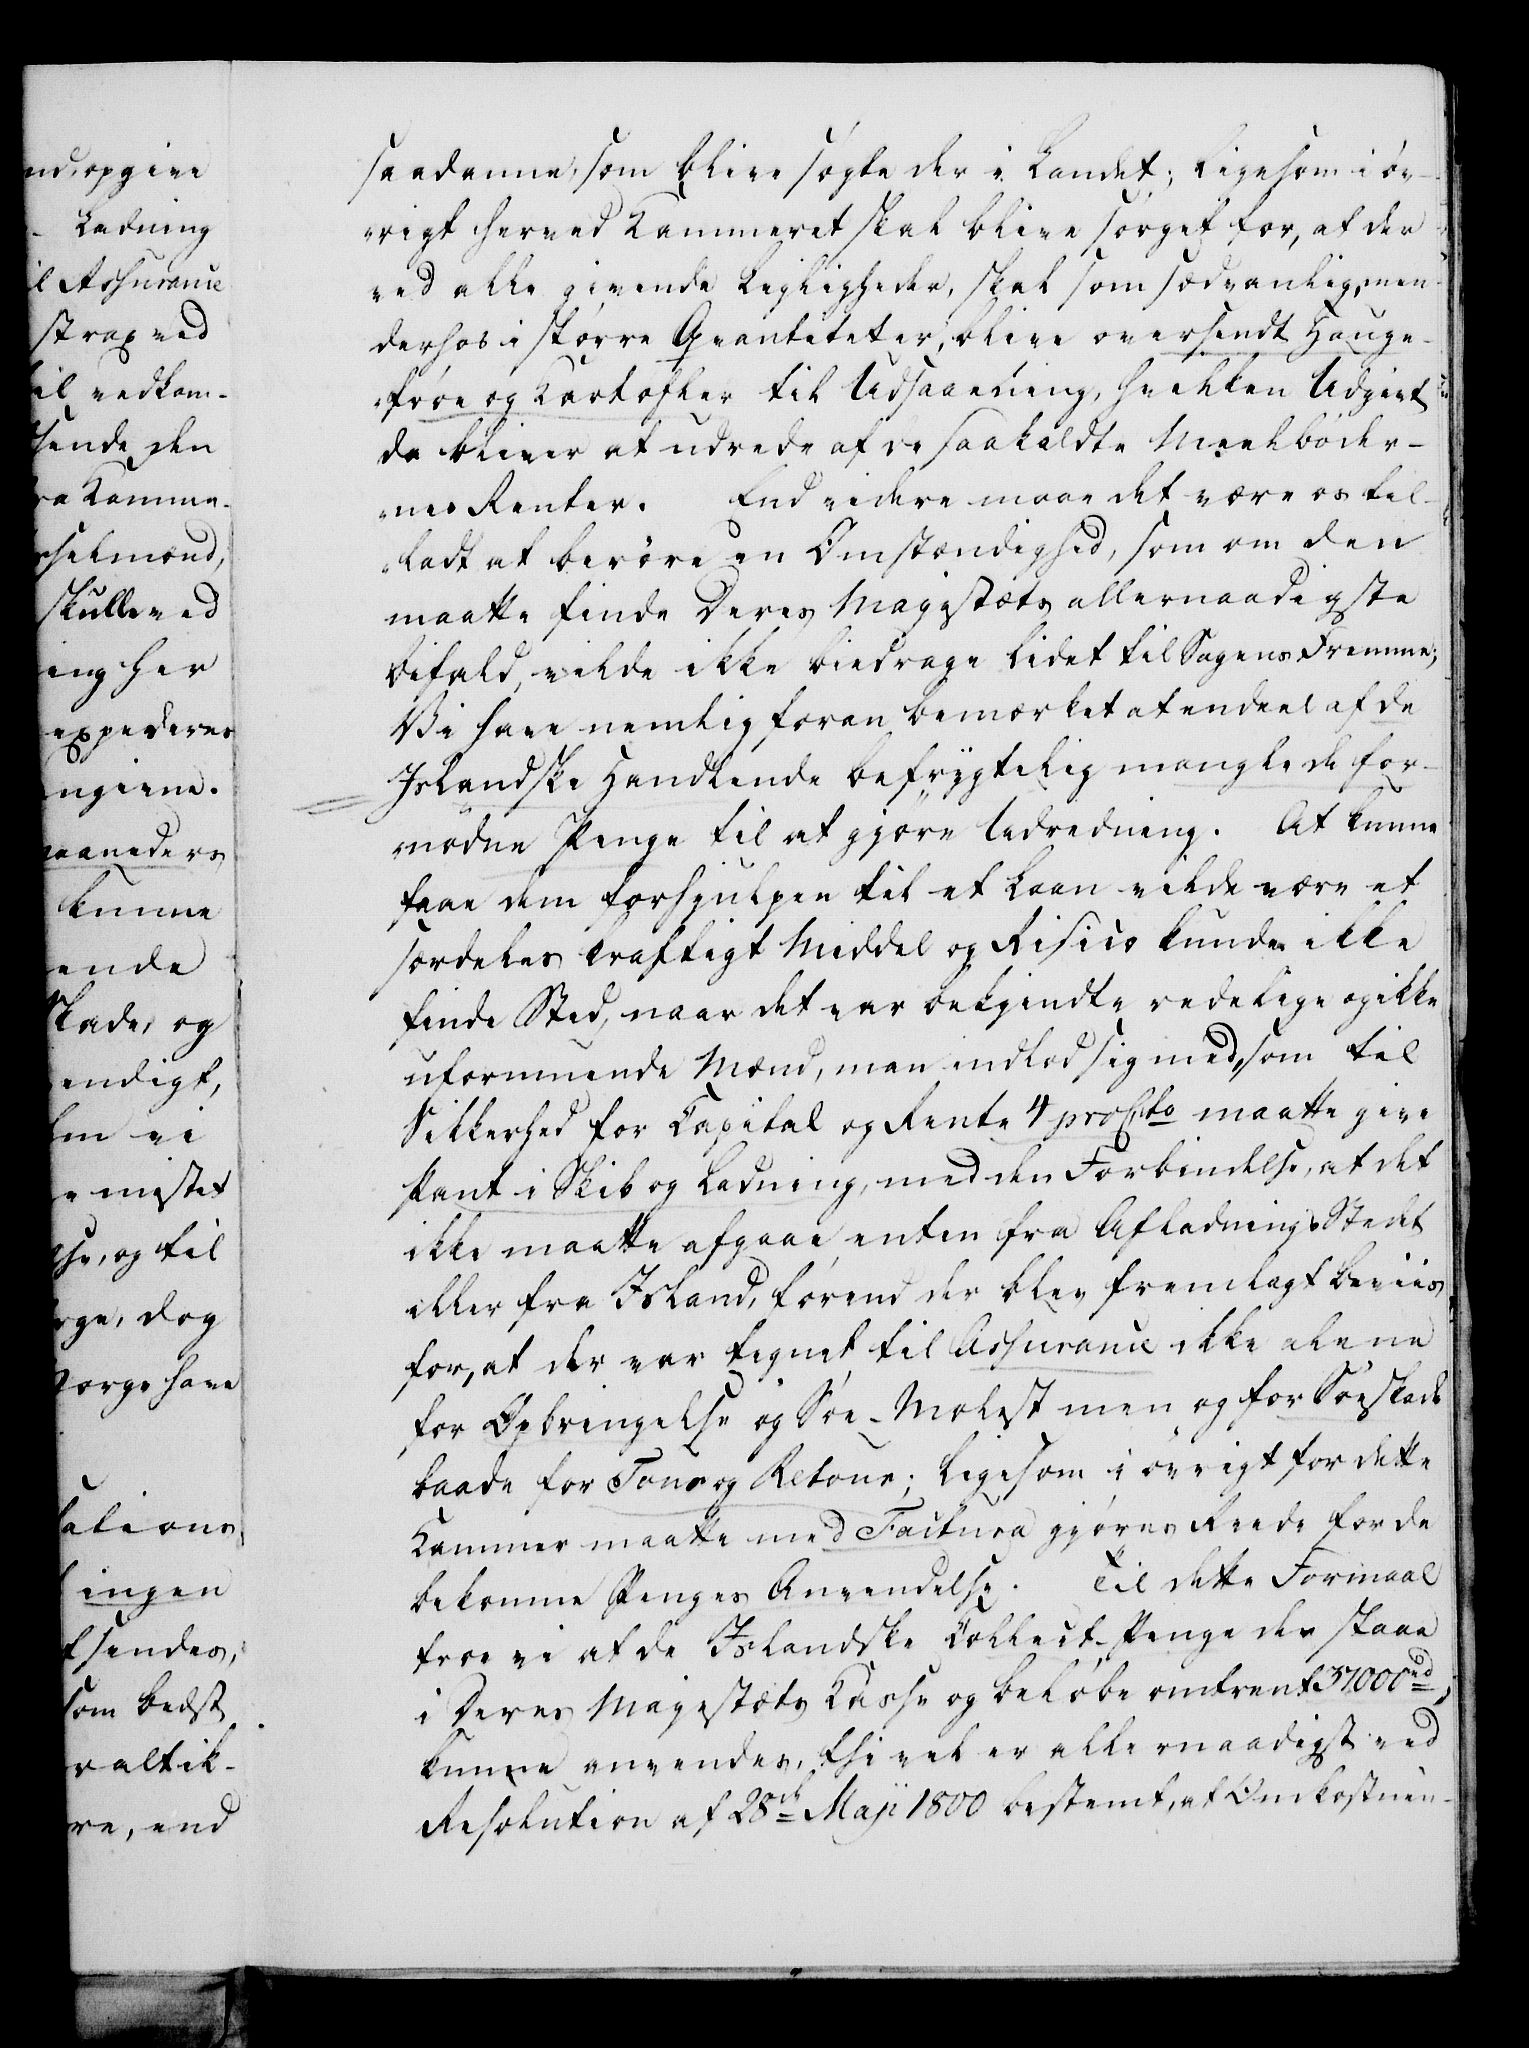 nd, opgive
Ladning
il Assurance
strax ved
til vedkom-
sende den
ra Kamme-
rselmænd,
skulle ved
ing her
expederes
ngivne.
maaneders
kunne
ende
Skade, og
endigt,
em vi
e mistet
lse, og til
rge, dog
Norge have
sations,
ingen
t sendes,
som bedst
raltik-
re, end
saadanne, som blive søgte der i Landet; ligesom i øv-
rigt herved Kammeret skal blive sørget for, at der
ved alle givende Leiligheder, skal som sædvanlig, men
derhos i større Qvantiteter, blive oversendt Hauge-
frøe og Kartofler til Udsaaening, hvilken Udgivt
da bliver at udrede af de saakaldte Meelbøder-
nes Renter. End videre maae det være os til-
ladt at berøre en Omstændighed, som om den
maatte finde Deres Majestæts allernaadigste
bifald, vilde ikke biedrage lidet til Sagens Fremme;
Vi have nemlig foran bemærket at endeel af de
Islandske Handlende befrygtelig manglede for-
nødne Penge til at gjøre Udredning. At kunne
faae dem forhjulpen til et Laan vilde være et
særdeles kraftigt Middel og Risico kunde ikke
finde Sted, naar det var bekjendte redelige og ikke
uformuende Mænd, man indlod sig med, som til
Sikkerhed for Capital og Rente 4 pro Cto maatte give
Pant i Skib og Ladning, med den Forbindelse, at det
ikke maatte afgaae enten fra Afladnings Stedet
eller fra Island, førend der blev fremlagt beviis
for, at der var tegnet til Assurance ikke alene
for Opbringelse og Søe-Molest men og for Søeskade
baade for Tour og Retour; ligesom i øvrigt for dette
Kammer maatte med Factura gjøres Rede for de
bekomne Penges Anvendelse. Til dette Formaal
troe vi at de Islandske Collect-Penge der staae
i Deres Majestæts Kasse og beløbe omtrent 37,000rd,
kunne anvendes, thi vel er allernaadigst ved
Resolution af 28de Maji 1800 bestemt, at Omkostnin-